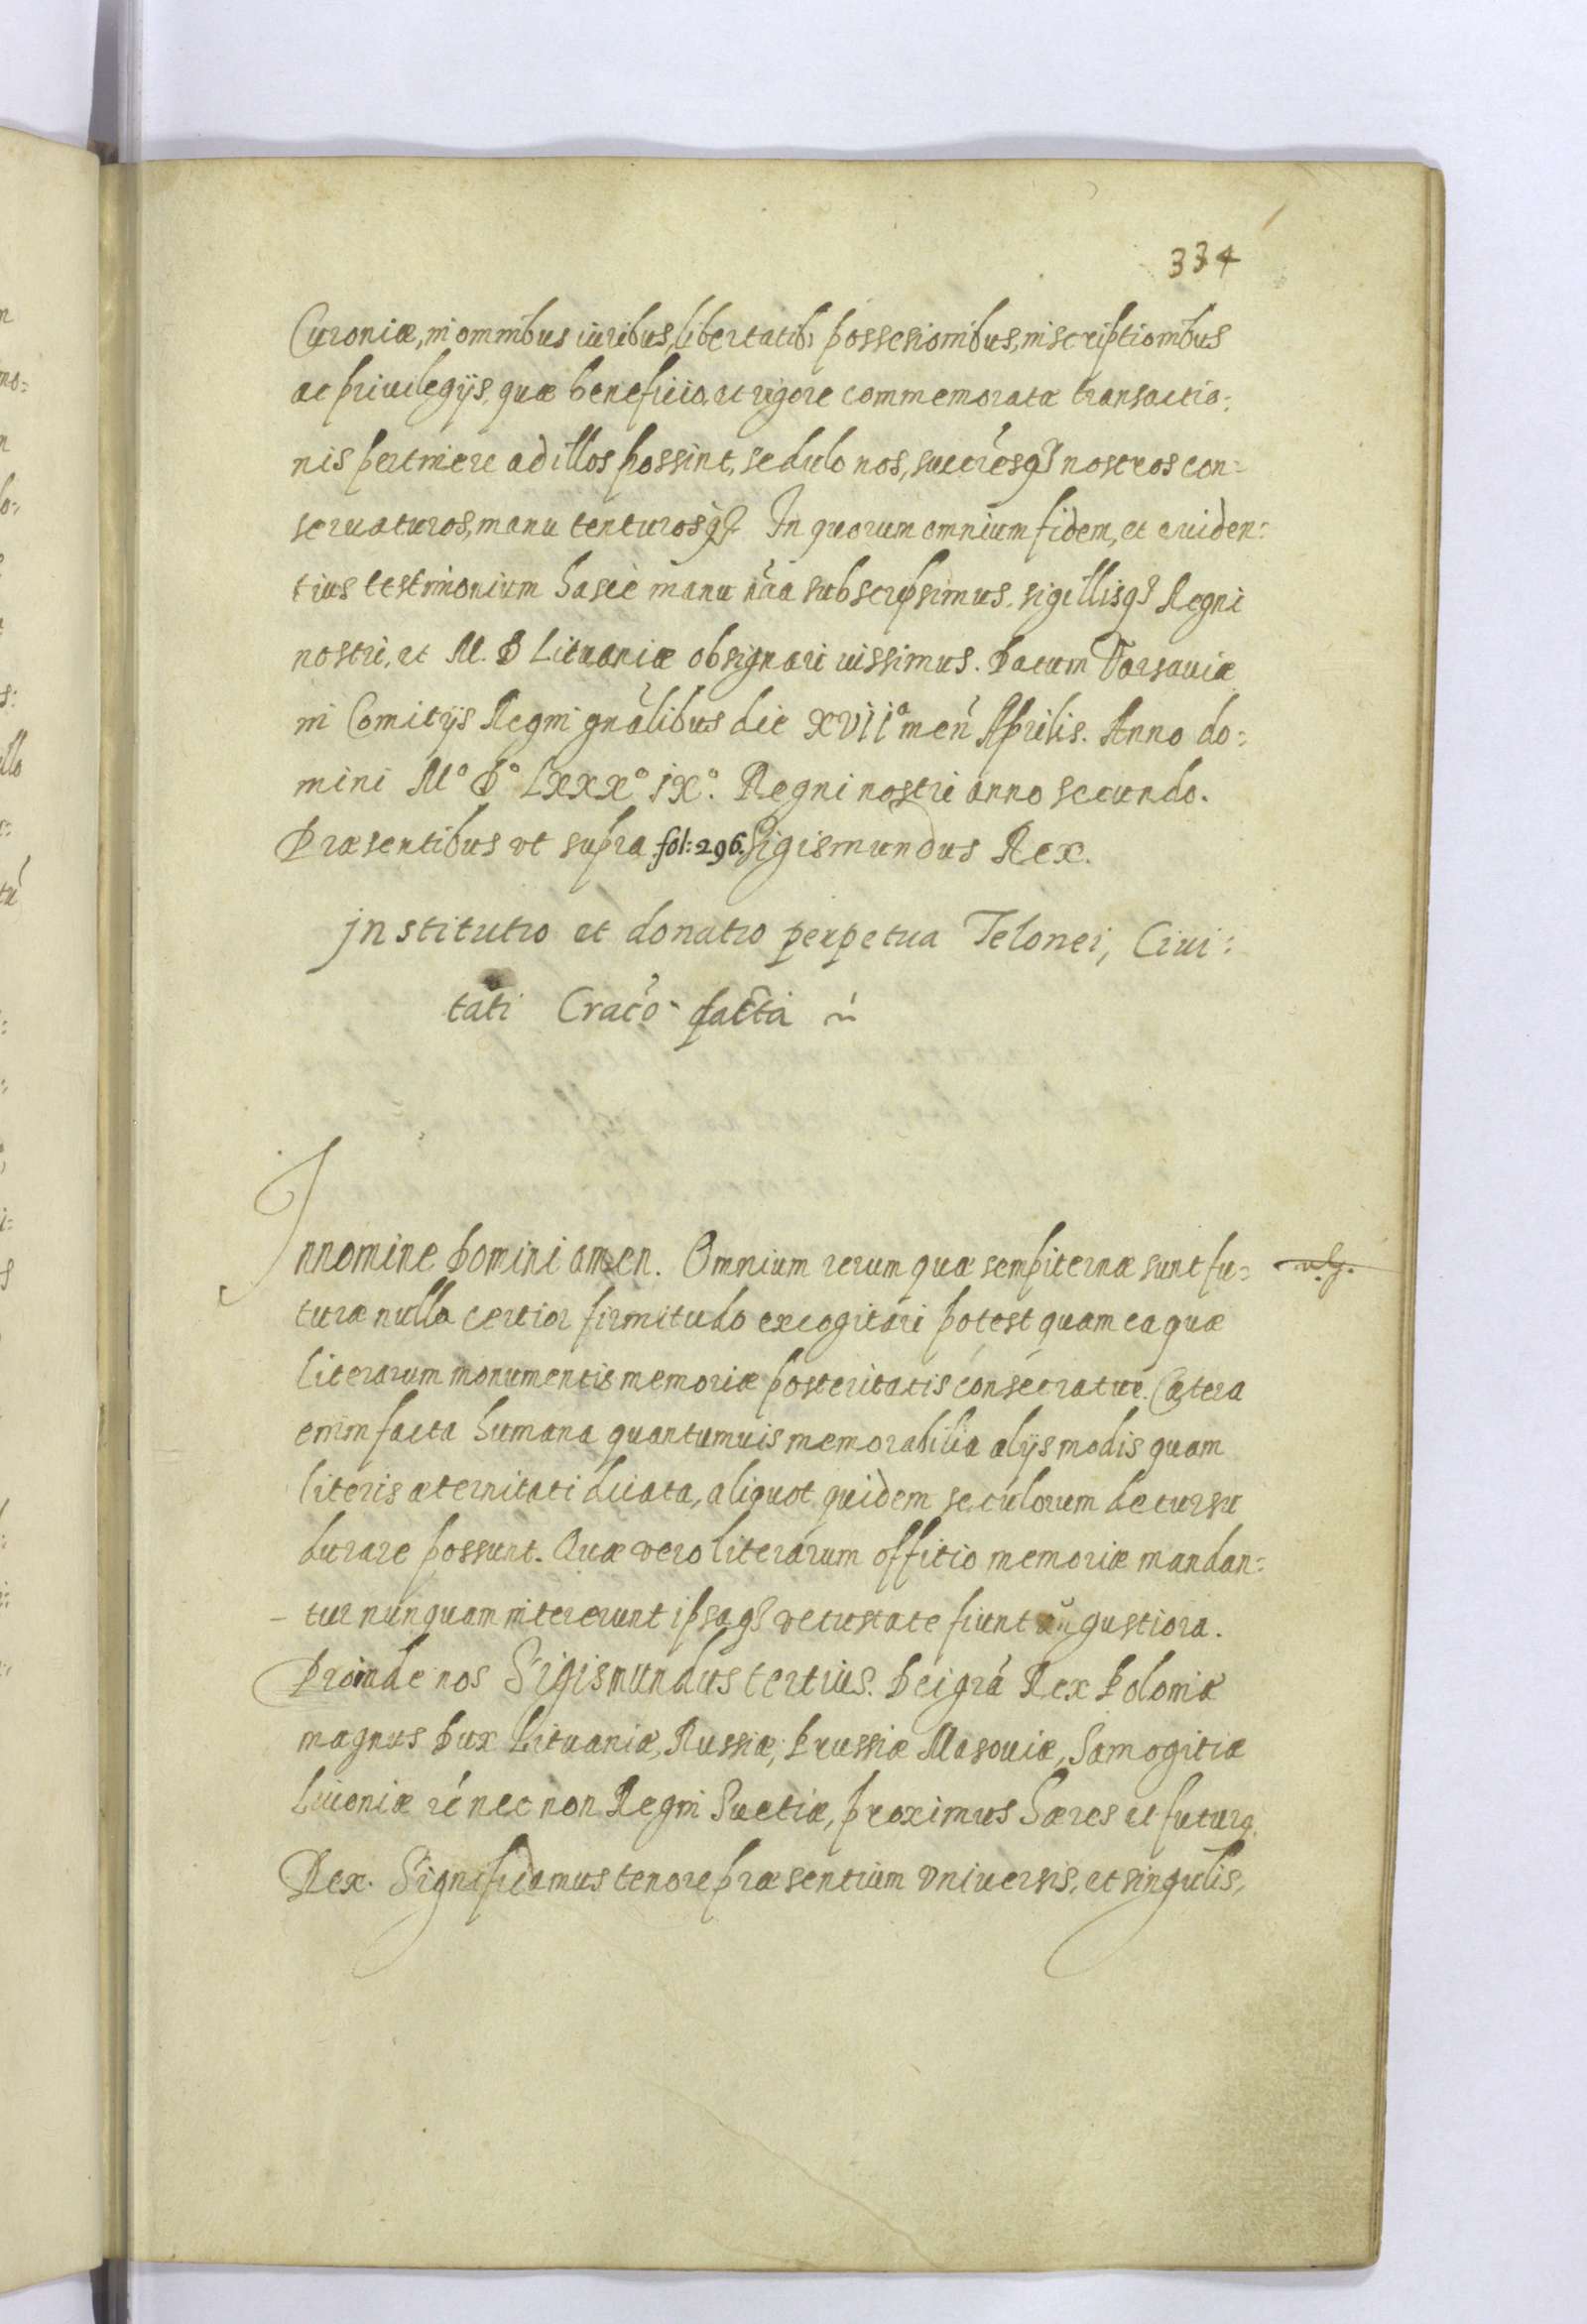 334
Curoniæ, in omnibus iuribus, libertatib, possesionibus, inscriptionibus
ac priuilegijs, quæ beneficio, et vigore commemoratæ transactio:
nis pertinere ad illos possint, sedulo nos, succresq nostros con:
seruaturos, manu tenturosq In quorum omnium fidem, et euiden:
tius testimonium hasce manu nra subscripsimus, sigillisq Regni
nostri, et M. D Lituaniæ obsignari iussimus. Datum Varsauiæ
in Comitijs Regni gnalibus die XVIIa men Aprilis. Anno do:
mini Mo Do Lxxxo jxo. Regni nostri anno secundo.
Præsentibus vt supra fol: 296. Sigismundus Rex.
Institutio et donatio perpetua Telonei, Ciui:
tati Craco facta
In nomine Domini amen. Omnium rerum quæ sempiternæ sunt fu:
turæ nulla certior firmitudo excogitari potest quam ea quæ
literarum monumentis memoriæ posteritatis consecratur. Cætera
enim facta humana quantumuis memorabilia alijs modis quam
literis æternitati dicata, aliquot quidem seculorum decursu
durare possunt. Quæ vero literarum offitio memoriæ mandan:
tur nunquam intererunt ipsaq vetustate fiunt augustiora.
Proinde nos Sigismundus tertius. Dei gra Rex Poloniæ
magnus Dux Lituaniæ, Russiæ, Prussiæ Masouiæ, Samogitiæ
Liuoniæ rć nec non Regni Suetiæ, proximus hæres et futurq
Rex. Significamus tenore præsentium Vniuersis, et singulis,